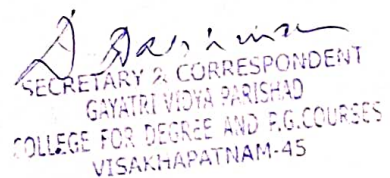 SECRETARY & CORRESPONDENT
GAYATRI VIDYA PARISHAD
COLLEGE FOR DEGREE AND P.G.COURSES
VISAKHAPATNAM-45